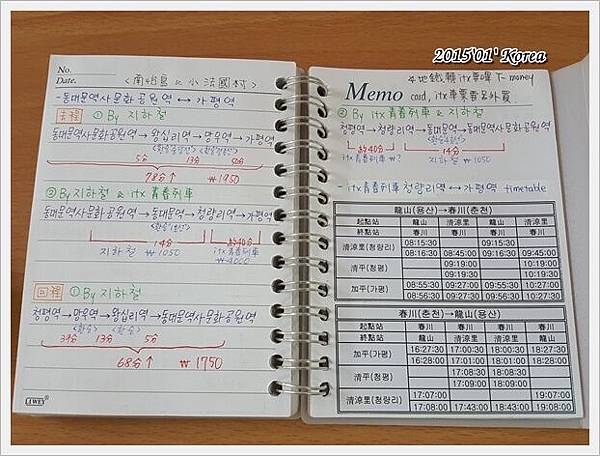 2015'01' Korea
No.
Date.
<南怡島 & 小法國村>
-동대문역사문화공원역 ↔ 가평역
去程 ① By 지하철
동대문역사문화공원역→왕십리역→망우역→가평역
5分 13分 50分
78分↑ ₩1950
② By 지하철 & itx 青春列車
동대문역사문화공원역→동대문역→청량리역→가평역
<환승>
14分 約40分
지하철 ₩1050 itx 青春列車
₩4000
回程 ① By 지하철
청평역→망우역→왕십리역→동대문역사문화공원역
<환승> <환승>
39分 13分 5分
68分↑ ₩1750
LAWEY®
& 地鐵轉itx要嗶 T-money
Memo card, itx車票要另外買
② By itx 青春列車 & 지하철
청평역→청량리역→동대문역→동대문역사문화공원역
約40分 14分
itx 青春列車 ₩? 지하철 ₩1050
- itx 青春列車 청량리역↔가평역 timetable
龍山(용산)→春川(춘천)
起點站 龍山 清涼里 龍山 清涼里
終點站 春川 春川 春川 春川
清涼里(청량리) 08:15:30 09:15:30
08:16:30 08:45:00 09:16:30 09:45:00
清平(청평) 09:19:00 10:19:00
09:19:30 10:19:30
加平(가평) 08:55:30 09:27:00 09:55:30 10:27:00
08:56:30 09:27:30 09:56:30 10:27:30
春川(춘천)→龍山(용산)
起點站 春川 春川 春川 春川
終點站 龍山 清涼里 龍山 清涼里
加平(가평) 16:27:30 17:00:30 18:00:30 18:27:30
16:28:00 17:01:00 18:01:00 18:28:00
清平(청평) 17:08:30 18:08:30
17:09:00 18:09:00
清涼里(청량리) 17:07:00 19:07:00
17:08:00 17:43:00 18:43:00 19:08:00